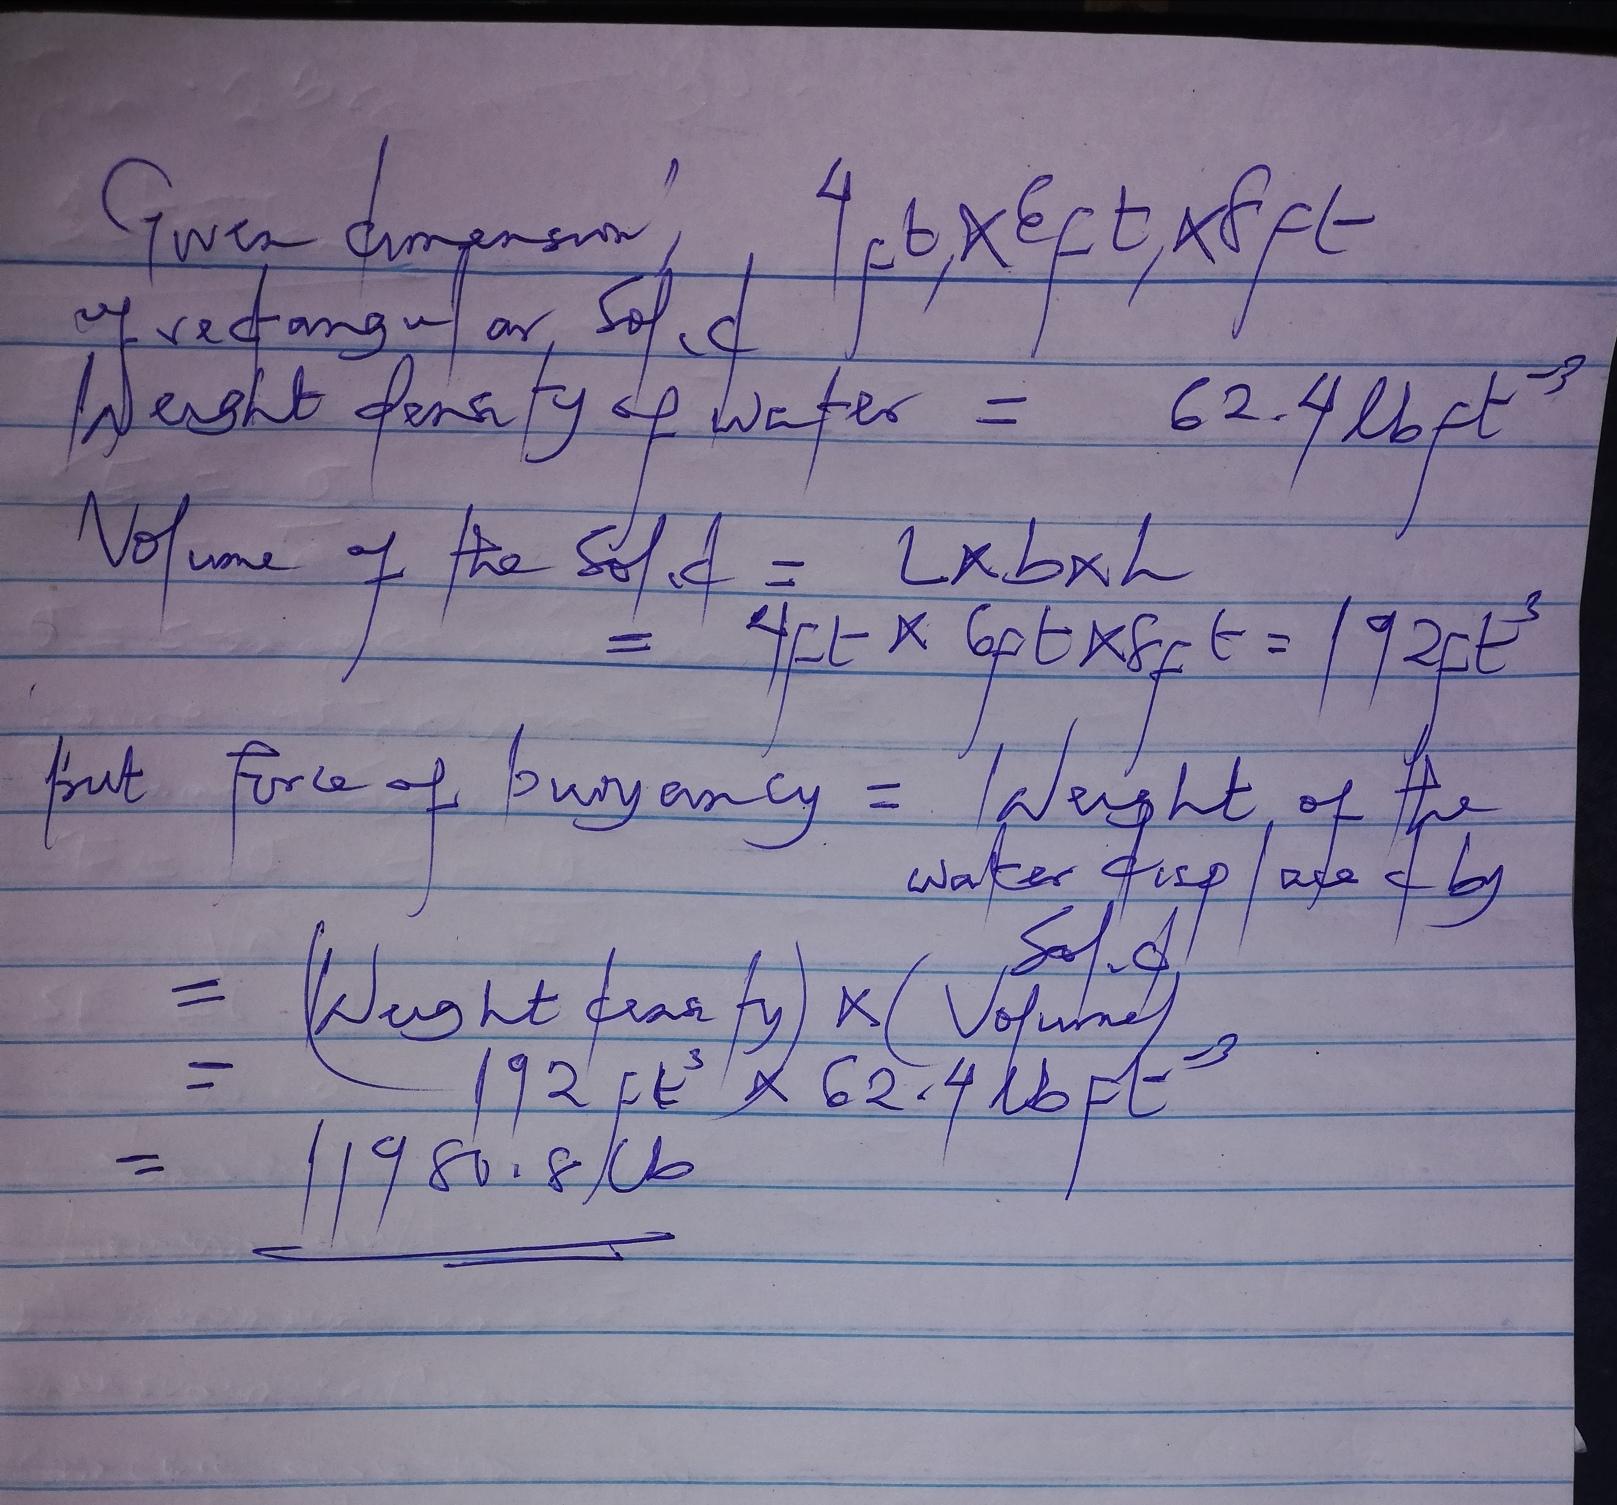 Given dimension, 4ft, x 6ft, x 8ft
of rectangular solid
Weight density of water = 62.4 lbft⁻³
Volume of the solid = L x b x h
= 4ft x 6ft x 8ft = 192ft³
but force of buoyancy = Weight of the
water displaced by
solid
= (Weight density) x (Volume)
= 192 ft³ x 62.4 lbft⁻³
= 11980.8 lb